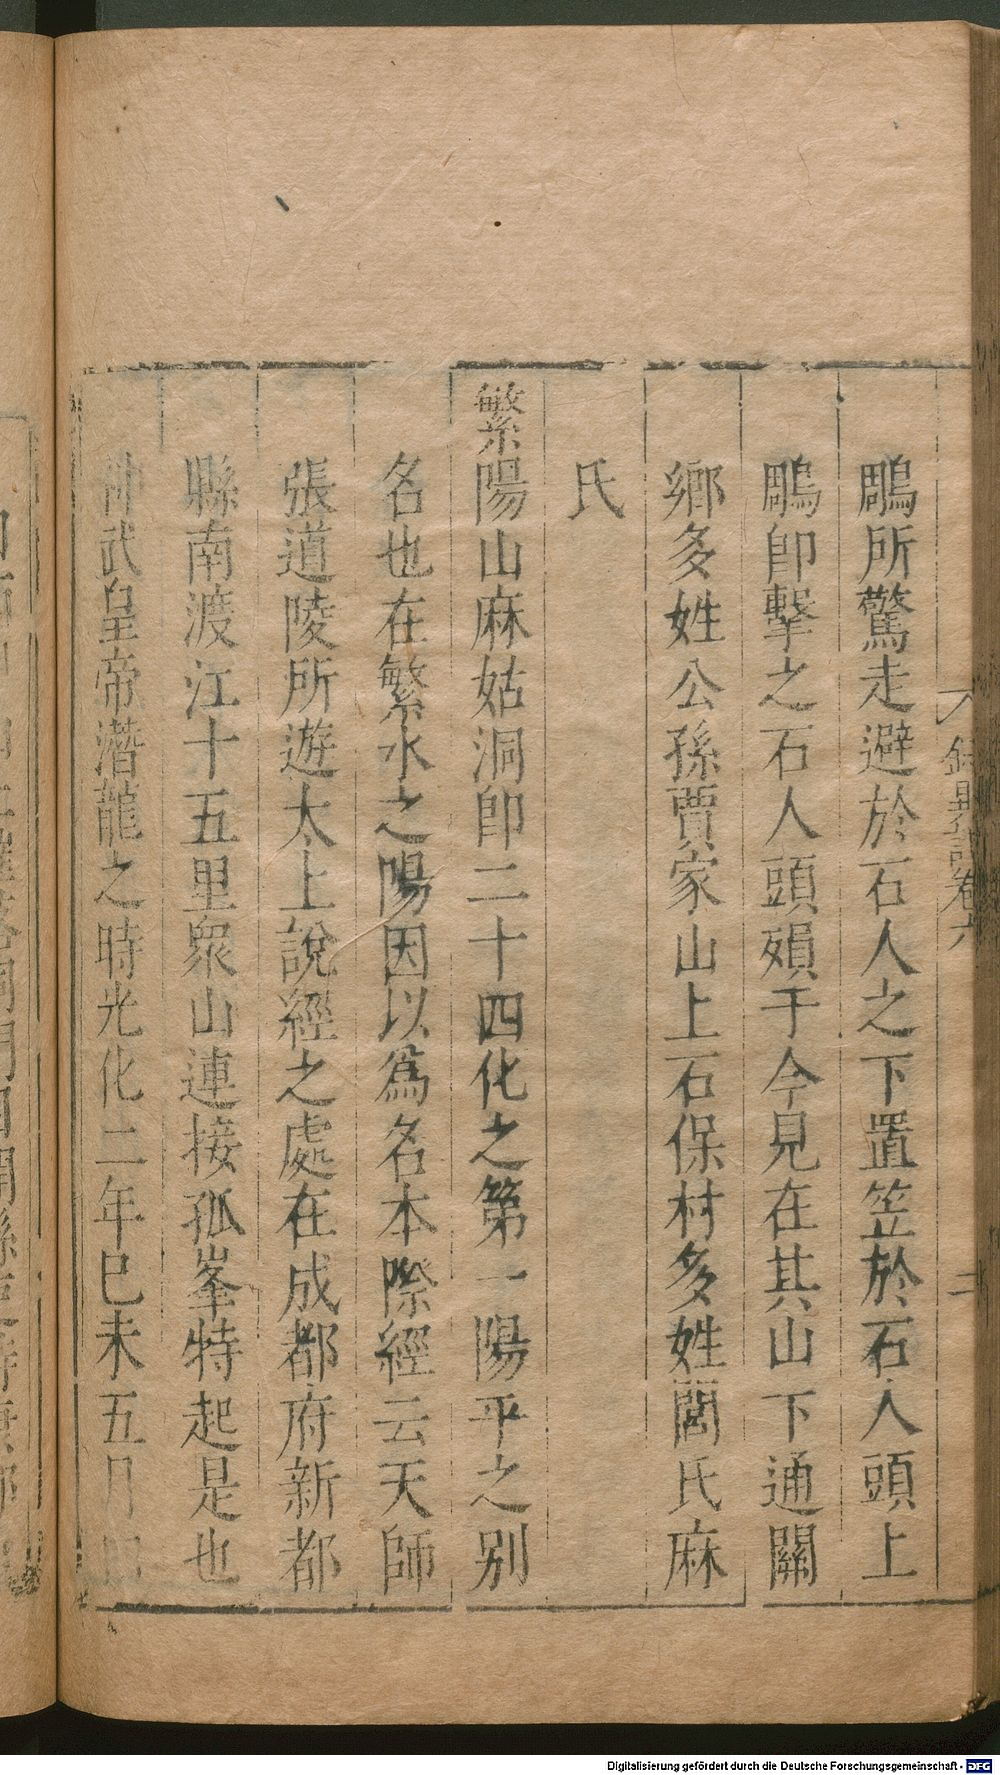 鵰所驚走避於石人之下置笠於石人頭上
鵰卽擊之石人頭殞于今見在其山下通關
鄉多姓公孫賈家山上石保村多姓閻氏麻
氏
繁陽山麻姑洞卽二十四化之第一陽平之别
名也在繁水之陽因以爲名本際經云天師
張道陵所遊太上說經之處在成都府新都
縣南渡江十五里衆山連接孤峯特起是也
神武皇帝潛龍之時光化二年巳未五月四
錄異記卷六
二
Digitalisierung gefördert durch die Deutsche Forschungsgemeinschaft - DFG